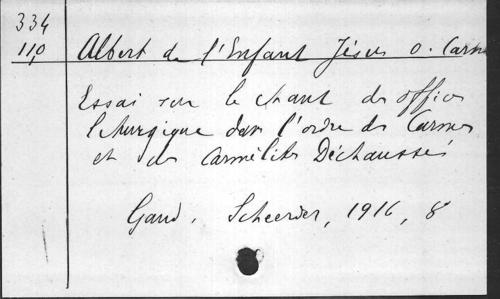 334
11,0
Albert de l'Enfant Jésus O. Carm
Essai sur le chant des offices
liturgique dans l'ordre des Carmes
et des Carmélites Déchaussés
Gand. Scheerder, 1916, 8°